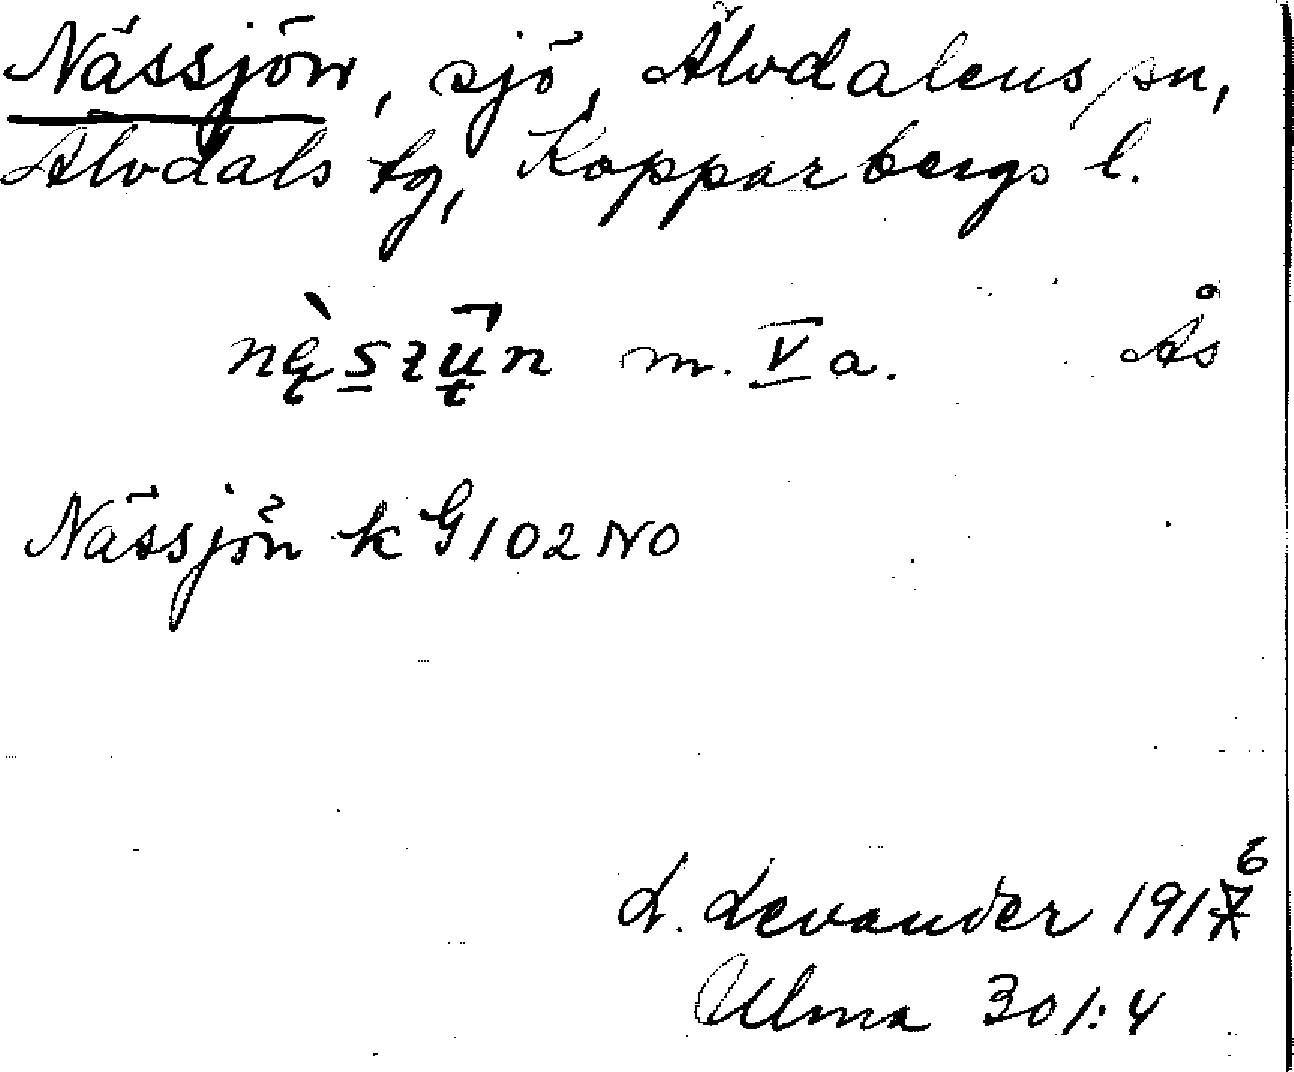 Nässjön, sjö, Älvdalens sn,
Älvdals tg, Kopparbergs l.
m. V a. Ås
Nässjön k G 102 NO
L. Levander 1917 6
Ulma 301:4